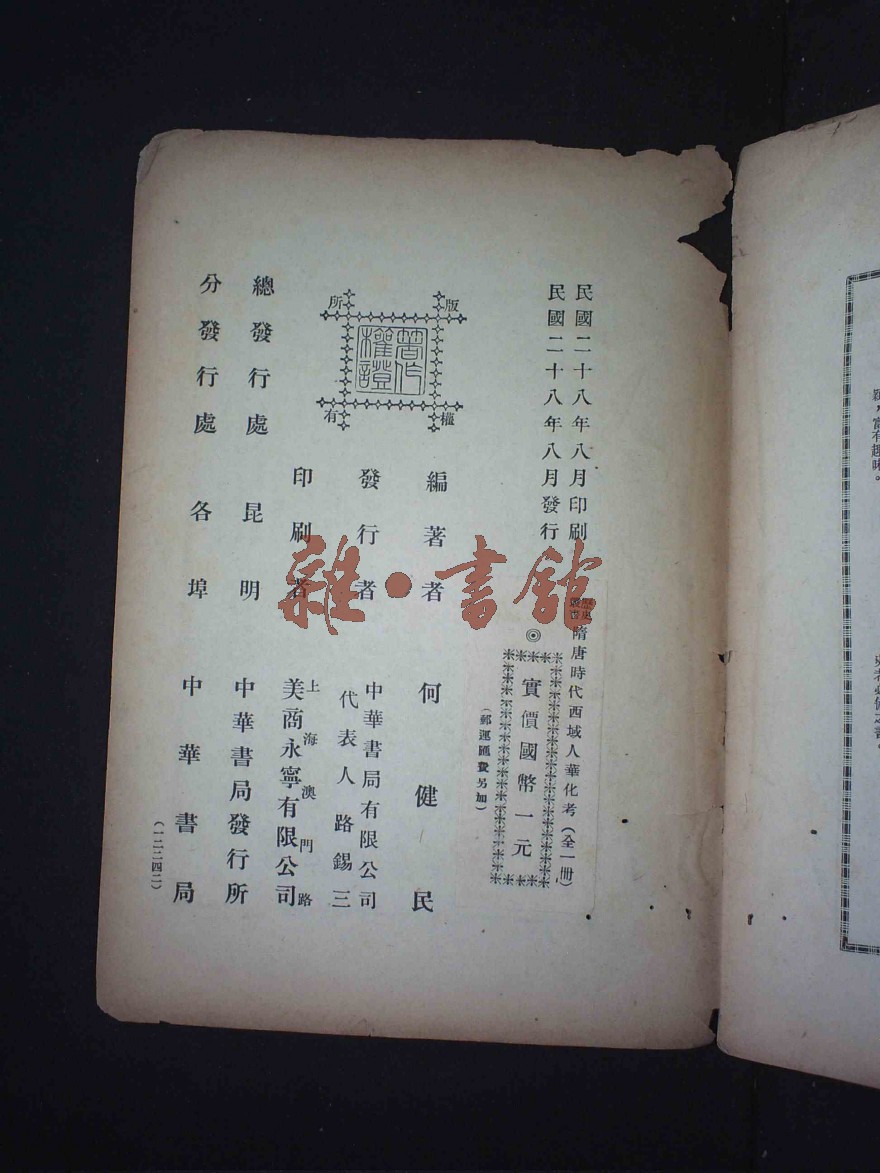 民國二十八年八月印刷
民國二十八年八月發行
歷史叢書 隋唐時代西域人華化考（全一冊）
◎實價國幣一元
（郵運匯費另加）
版權所有
著作權證
編著者 何健民
發行者 中華書局有限公司
代表人 路錫三
印刷者 上海澳門路
美商永寧有限公司
總發行處 昆明 中華書局發行所
分發行處 各埠 中華書局
（一二二四二）
雜·書館